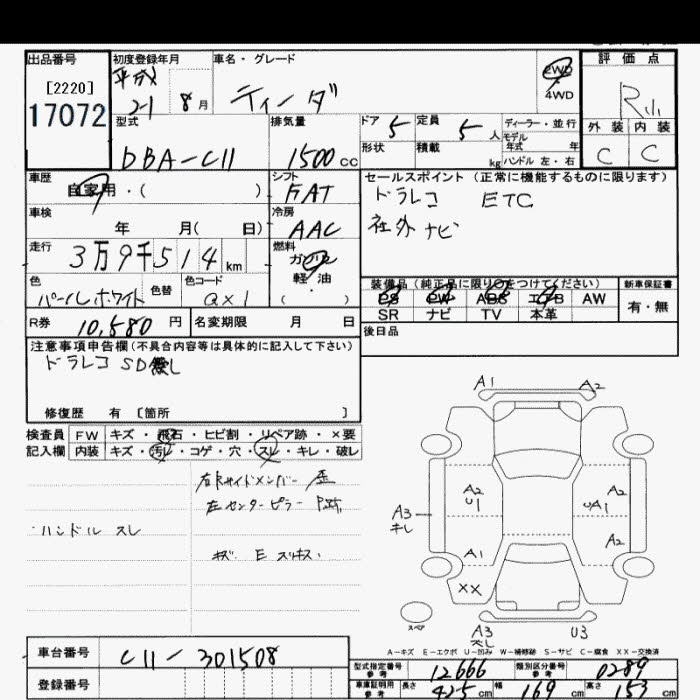 出品番号
[2220]
17072
初度登録年月
平成
21 8月
車名・グレード
ティーダ
2WD
4WD
評価点
R小
外装 内装
C C
型式
DBA-C11
排気量
1500cc
ドア 5
定員 5人
ディーラー・並行
モデル
年式 年
形状
積載 kg
ハンドル 左・右
車歴
自家用・( )
シフト
FAT
セールスポイント (正常に機能するものに限ります)
ドラレコ ETC
社外 ナビ
車検
年 月( 日)
冷房
AAC
走行
3万9千514km
燃料
ガソリン
軽・油
( )
色
パールホワイト
色替
色コード
QX1
装備品(純正品に限り○をつけてください)
新車保証書
PS PW ABS エアB AW
SR ナビ TV 本革
有・無
R券 10,580円
名変期限 月 日
後日品
注意事項申告欄(不具合内容等は具体的に記入して下さい)
ドラレコ SD無し
修復歴 有 [箇所 ]
検査員
記入欄
FW キズ・飛石・ヒビ割・リペア跡・×要
内装 キズ・汚レ・コゲ・穴・スレ・キレ・破レ
右Rサイドメンバー 歪
左センターピラー
ハンドル スレ
キズ・E
A1 A2
A2
U1
A2
UA1
A3
キレ
A1
A2
XX
スペア
A3
U3
A-キズ E-エクボ U-凹み W-補修跡 S-サビ C-腐食 XX-交換済
車台番号
C11-301508
登録番号
型式指定番号
参考
12666
類別区分番号
参考
0289
車庫証明用
参考
長さ 425cm 幅 169cm 高さ 153cm